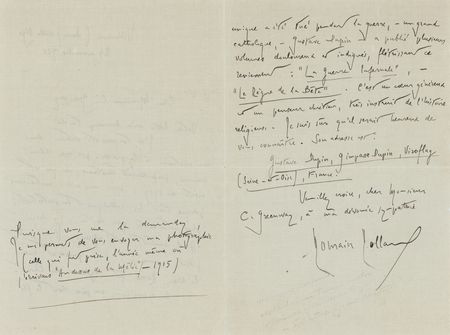 unique a été tué pendant la guerre, – un grand
catholique, – Gustave Dupin a publié plusieurs
volumes douloureux et indignés, flétrissant ce
: "La Guerre Infernale", –
"Le Règne de la Bête". C'est un cœur généreux
et un penseur chrétien, très instruit de l'histoire
religieuse. Je suis sûr qu'il serait heureux de
vous connaître. Son adresse est :
Gustave Dupin, 9 impasse Dupin, Viroflay
(Seine-et-Oise), France.
Veuillez croire, cher Monsieur
C. Greenway, à ma dévouée sympathie
Romain Rolland
Puisque vous me la demandez,
je me permets de vous envoyer ma photographie
(celle qui fut prise, l'année même où
j'écrivais "Au dessus de la Mêlée" – 1915)